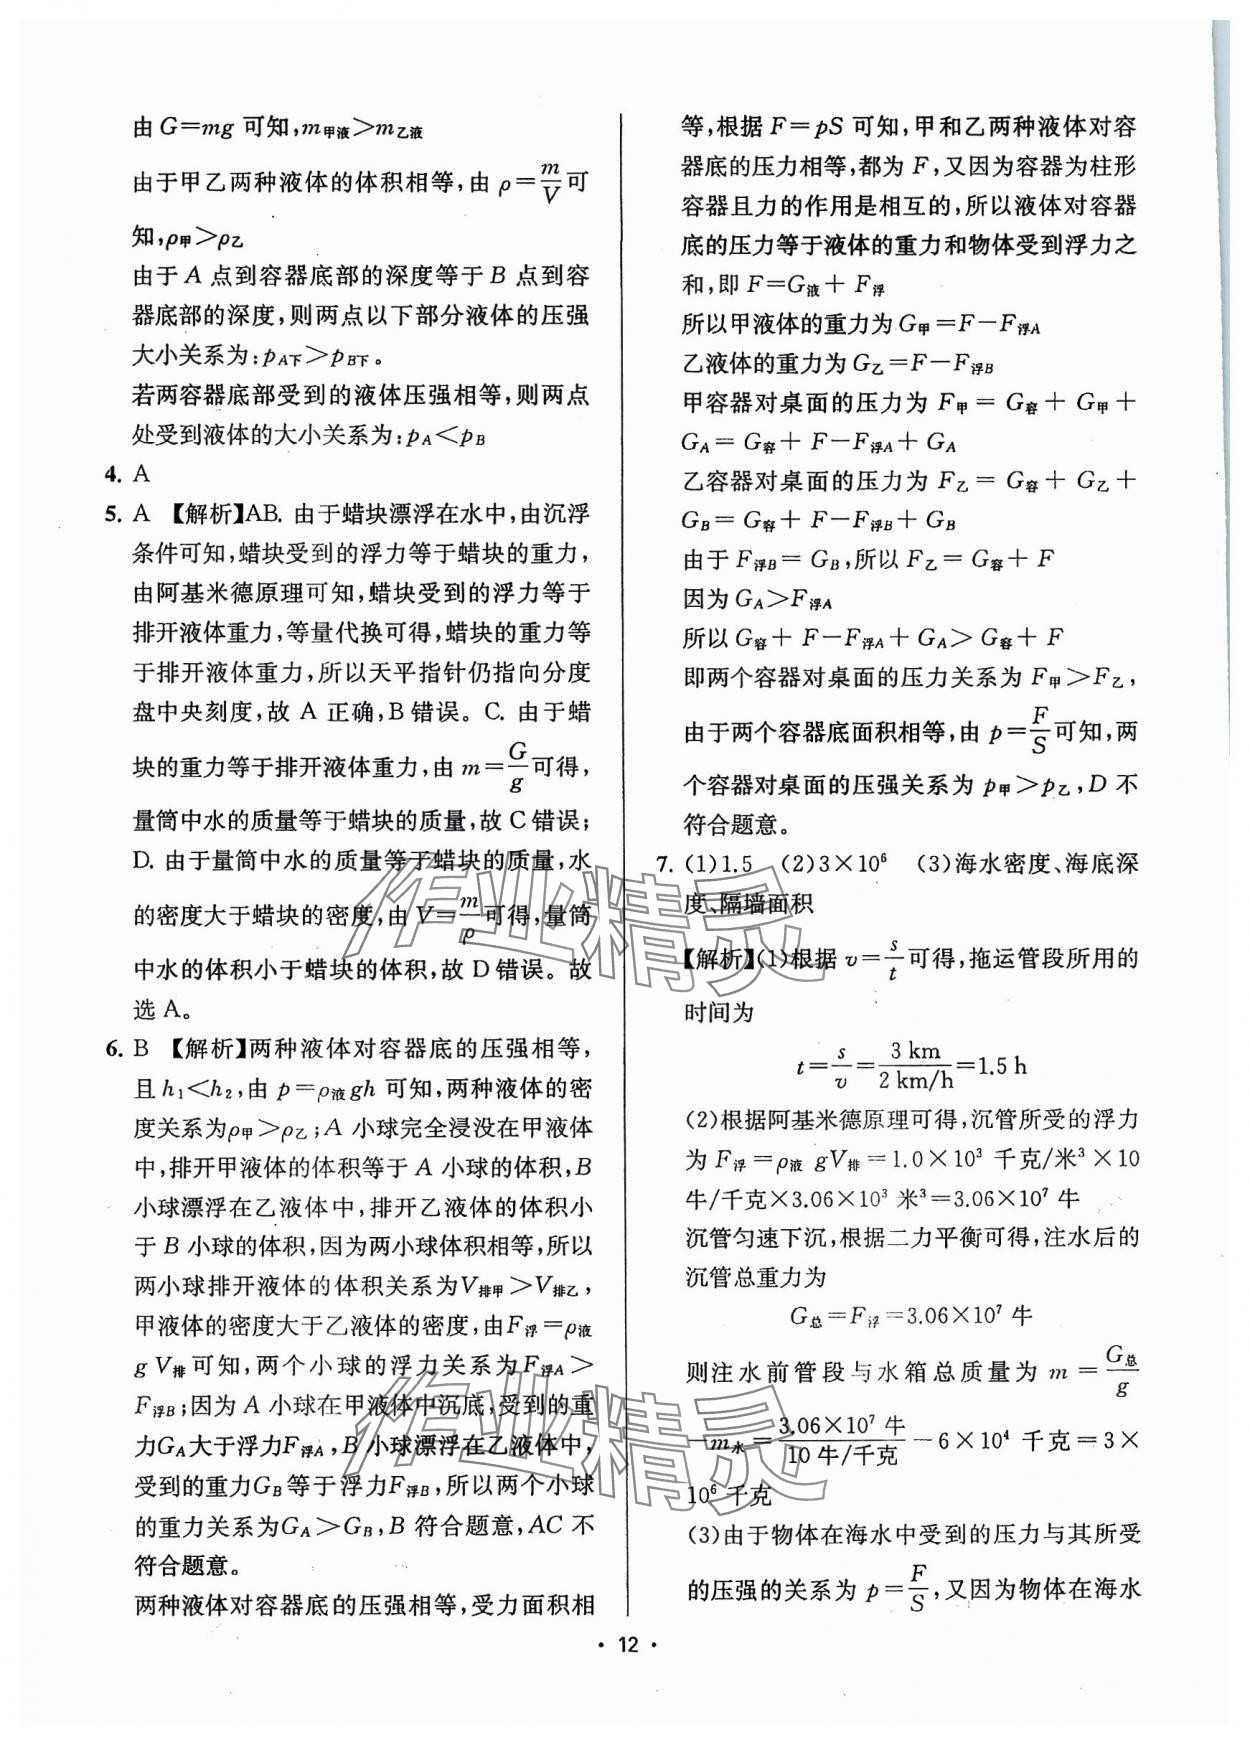 由 G=mg 可知,m甲液>m乙液
由于甲乙两种液体的体积相等,由 ρ=m/V可
知,ρ甲>ρ乙
由于 A 点到容器底部的深度等于 B 点到容
器底部的深度,则两点以下部分液体的压强
大小关系为:pA下>pB下。
若两容器底部受到的液体压强相等,则两点
处受到液体的大小关系为:pA<pB
4. A
5. A 【解析】AB. 由于蜡块漂浮在水中,由沉浮
条件可知,蜡块受到的浮力等于蜡块的重力,
由阿基米德原理可知,蜡块受到的浮力等于
排开液体重力,等量代换可得,蜡块的重力等
于排开液体重力,所以天平指针仍指向分度
盘中央刻度,故 A 正确,B 错误。C. 由于蜡
块的重力等于排开液体重力,由 m=G/g可得,
量筒中水的质量等于蜡块的质量,故 C 错误;
D. 由于量筒中水的质量等于蜡块的质量,水
的密度大于蜡块的密度,由 V=m/ρ可得,量筒
中水的体积小于蜡块的体积,故 D 错误。故
选 A。
6. B 【解析】两种液体对容器底的压强相等,
且 h₁<h₂,由 p=ρ液gh 可知,两种液体的密
度关系为ρ甲>ρ乙;A 小球完全浸没在甲液体
中,排开甲液体的体积等于 A 小球的体积,B
小球漂浮在乙液体中,排开乙液体的体积小
于 B 小球的体积,因为两小球体积相等,所以
两小球排开液体的体积关系为V排甲>V排乙,
甲液体的密度大于乙液体的密度,由F浮=ρ液
gV排可知,两个小球的浮力关系为F浮A>
F浮B;因为 A 小球在甲液体中沉底,受到的重
力GA大于浮力F浮A,B 小球漂浮在乙液体中,
受到的重力GB等于浮力F浮B,所以两个小球
的重力关系为GA>GB,B 符合题意,AC 不
符合题意。
两种液体对容器底的压强相等,受力面积相
等,根据 F=pS 可知,甲和乙两种液体对容
器底的压力相等,都为 F,又因为容器为柱形
容器且力的作用是相互的,所以液体对容器
底的压力等于液体的重力和物体受到浮力之
和,即 F=G液+F浮
所以甲液体的重力为 G甲=F-F浮A
乙液体的重力为 G乙=F-F浮B
甲容器对桌面的压力为 F甲=G容+G甲+
GA=G容+F-F浮A+GA
乙容器对桌面的压力为 F乙=G容+G乙+
GB=G容+F-F浮B+GB
由于 F浮B=GB,所以 F乙=G容+F
因为 GA>F浮A
所以 G容+F-F浮A+GA>G容+F
即两个容器对桌面的压力关系为 F甲>F乙,
由于两个容器底面积相等,由 p=F/S可知,两
个容器对桌面的压强关系为 p甲>p乙,D 不
符合题意。
7. (1)1.5 (2)3×10⁶ (3)海水密度、海底深
度、隔墙面积
【解析】(1)根据 v=s/t可得,拖运管段所用的
时间为
t=s/v=3 km/2 km/h=1.5 h
(2)根据阿基米德原理可得,沉管所受的浮力
为 F浮=ρ液 gV排=1.0×10³ 千克/米³×10
牛/千克×3.06×10³ 米³=3.06×10⁷ 牛
沉管匀速下沉,根据二力平衡可得,注水后的
沉管总重力为
G总=F浮=3.06×10⁷ 牛
则注水前管段与水箱总质量为 m=G总/g
-m水=3.06×10⁷ 牛/10 牛/千克-6×10⁴ 千克=3×
10⁶ 千克
(3)由于物体在海水中受到的压力与其所受
的压强的关系为 p=F/S,又因为物体在海水
• 12 •
作业精灵
作业精灵